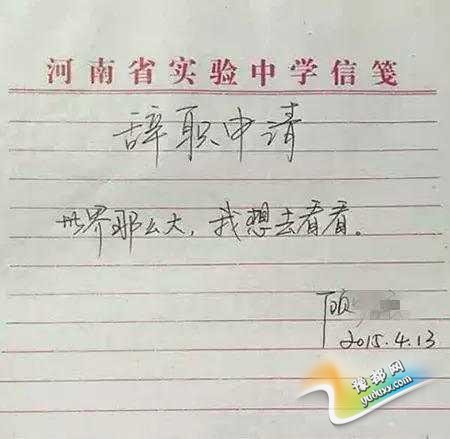 河南省实验中学信笺
辞职申请
世界那么大，我想去看看。
顾
2015.4.13
豫都网
yuduxx.com